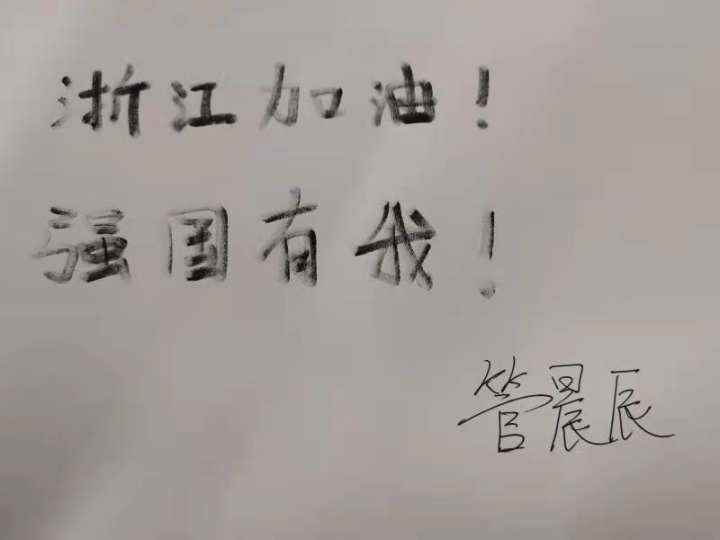 浙江加油！
强国有我！
管晨辰